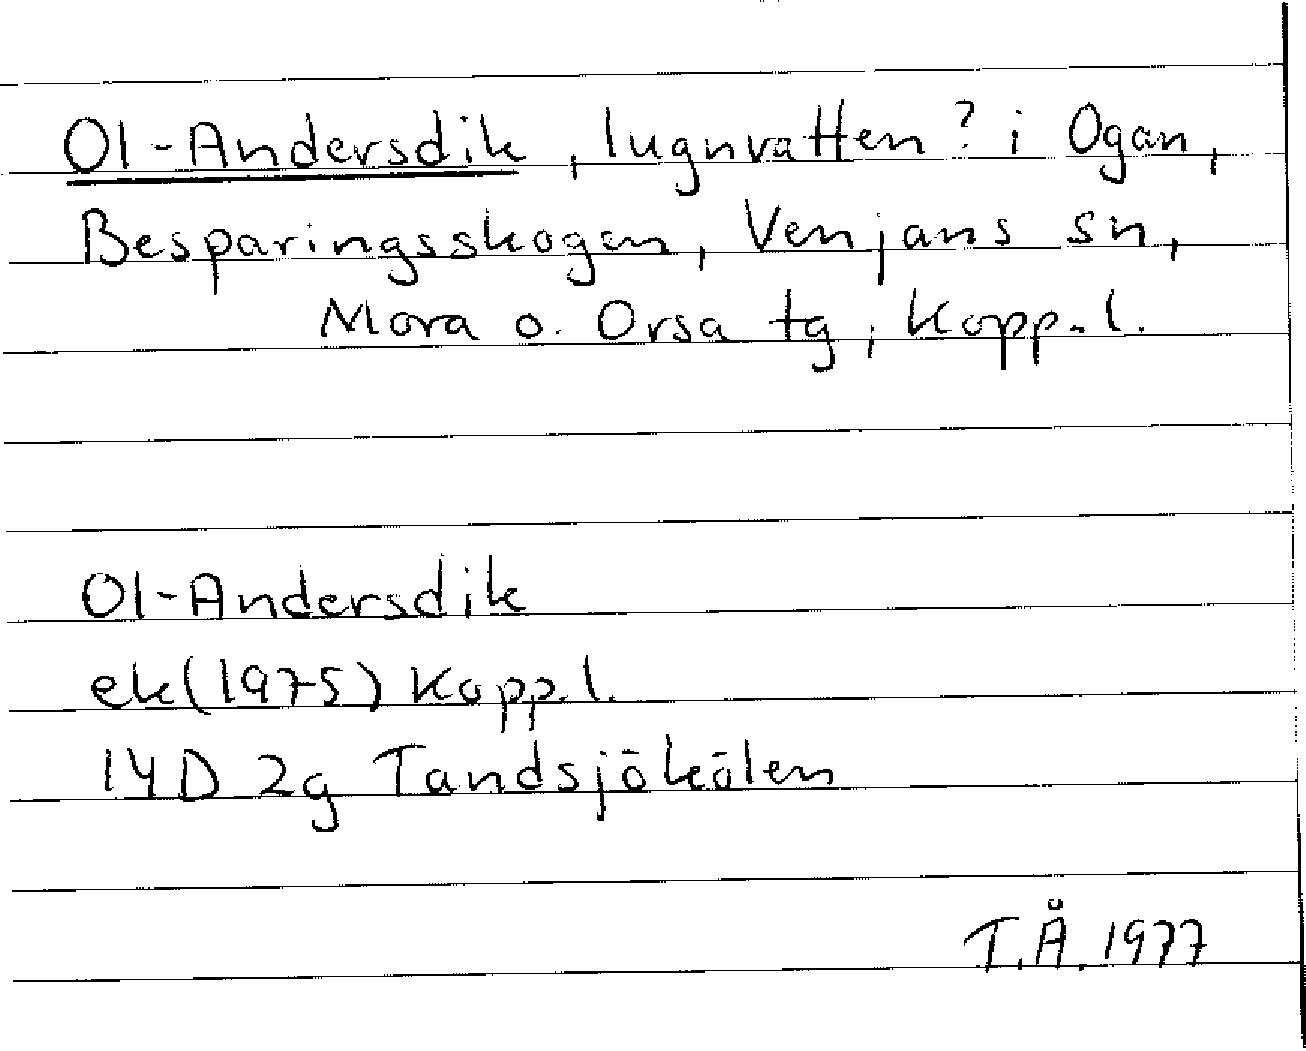 Ol-Andersdik, lugnvatten? i Ogan,
Besparingsskogen, Venjans sn,
Mora o. Orsa tg, Kopp. l.
Ol-Andersdik
ek(1975) Kopp. l.
14D 2g Tandsjökölen
T.Å. 1977